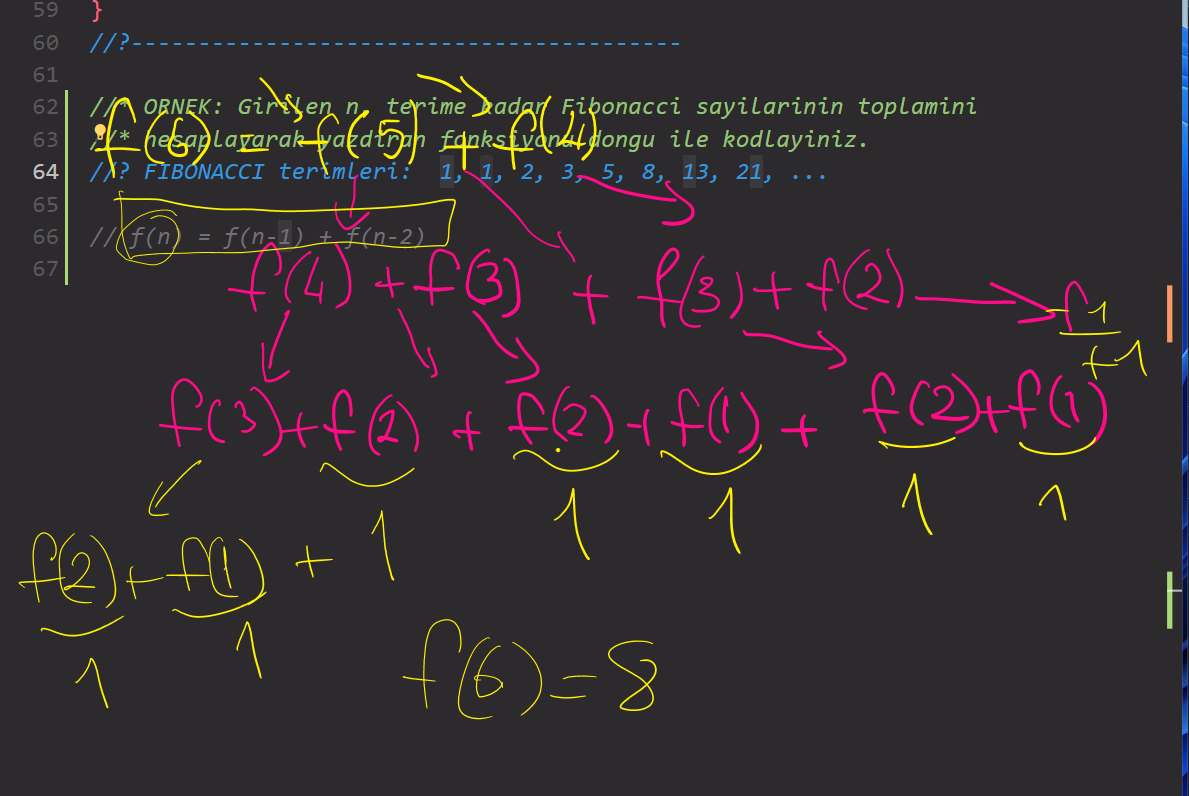 59 }
60 //?-----------------------------------------
61
62 //* ORNEK: Girilen n. terime kadar Fibonacci sayilarinin toplamini
f(6) = f(5) + f(4)
63 //* hesaplayarak yazdiran fonksiyonu dongu ile kodlayiniz.
64 //? FIBONACCI terimleri: 1, 1, 2, 3, 5, 8, 13, 21, ...
65
66 // f(n) = f(n-1) + f(n-2)
67
f(4) + f(3) + f(3) + f(2)
1
+1
f(3) + f(2) + f(2) + f(1) + f(2) + f(1)
1 1 1 1 1
f(2) + f(1) +
1 1
f(6) = 8